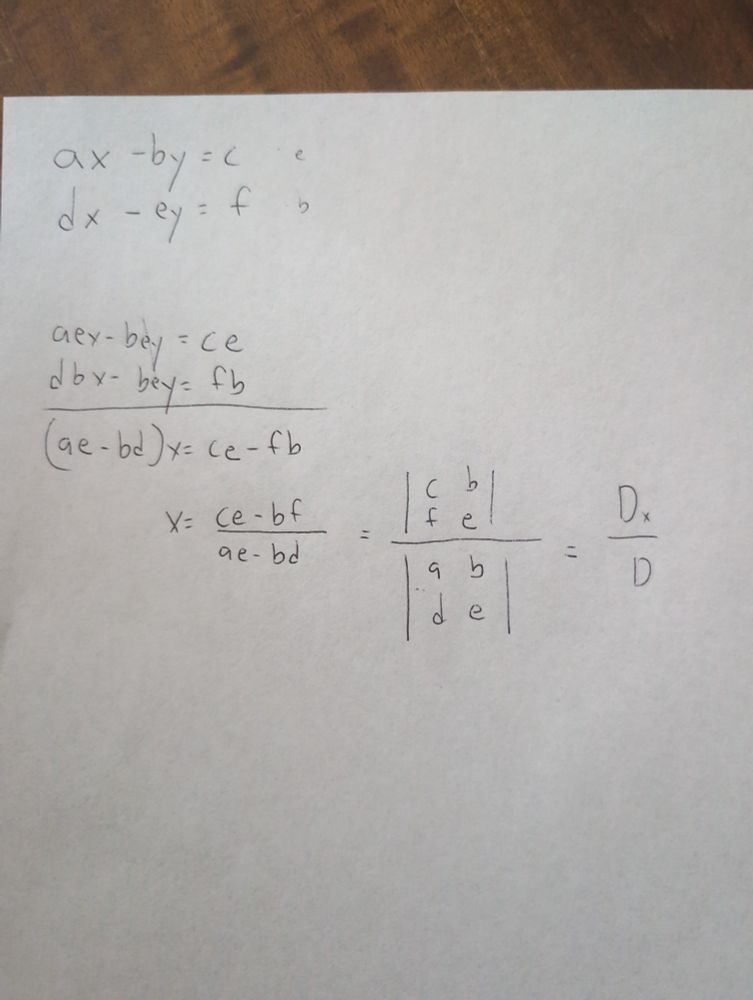 ax - by = c e
dx - ey = f b
aex - bey = ce
dbx - bey = fb
(ae - bd)x = ce - fb
x = ce - bf / ae - bd = |c b f e| / |a b d e| = Dx / D